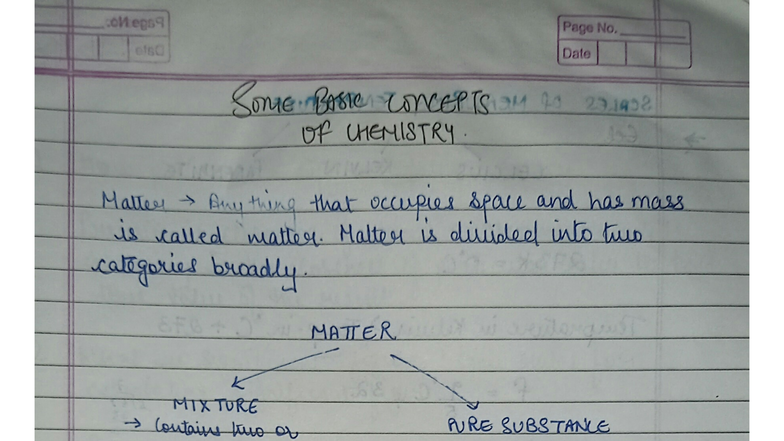 Page No.
Date
SOME BASIC CONCEPTS
OF CHEMISTRY.
Matter → Anything that occupies space and has mass
is called matter. Matter is divided into two
categories broadly.
MATTER
MIXTURE
→ Contains two or
PURE SUBSTANCE